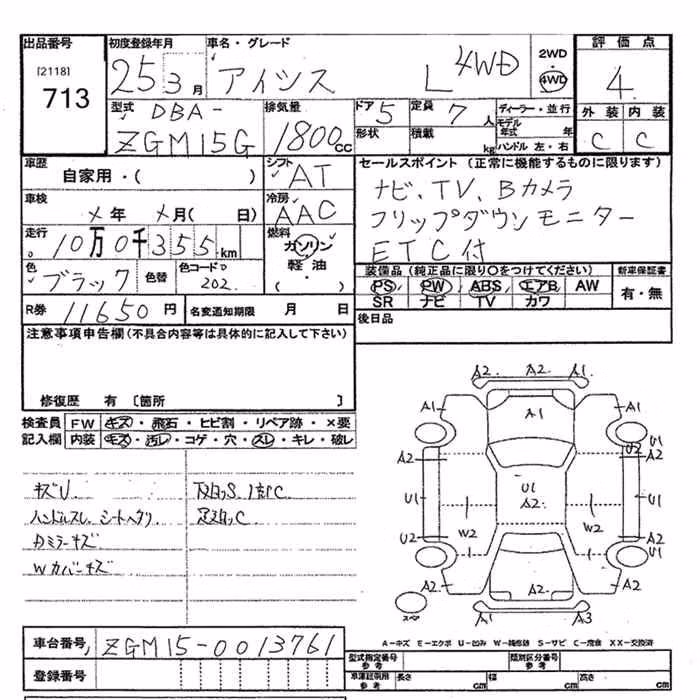 出品番号 初度登録年月 車名・グレード 評価点
[2118]
713
25 3月 アイシス L 4WD 2WD 4WD 4
外装 内装
C C
型式 DBA-
ZGM15G
排気量 1800cc
ドア 5 定員 7人 ディーラー・並行
形状 積載 kg モデル年式 年
ハンドル 左・右
車歴 自家用・( )
シフト AT
セールスポイント (正常に機能するものに限ります)
ナビ、TV、Bカメラ
フリップダウンモニター
ETC付
車検 メ年 メ月( 日)
冷房 AAC
走行 10万0千355km
燃料 ガソリン・軽油・( )
色 ブラック 色替 色コード 202
装備品 (純正品に限り〇をつけてください) 新車保証書
PS PW ABS エアB AW 有・無
SR ナビ TV カワ
R券 11650円 名変通知期限 月 日
後日品
注意事項申告欄(不具合内容等は具体的に記入して下さい)
修復歴 有 [箇所 ]
検査員 FW キズ・飛石・ヒビ割・リペア跡・×要
記入欄 内装 キズ・汚レ・コゲ・穴・スレ・キレ・破レ
キズU
ハンドルスレ、シートヘタリ
Dミラーキズ
Wカバーキズ
A2 A2 A2
A1 A1 A1
U1 U2
A2 A2
U1 U1 A2 U1
U2 W2 W2 U1
A2 A2 A2
スペア A1 A3
A-キズ E-エクボ U-凹み W-補修跡 S-サビ C-腐食 XX-交換済
車台番号 ZGM15-0013761
登録番号
型式指定番号 参考 類別区分番号 参考
車庫証明用 参考 長さ cm 幅 cm 高さ cm